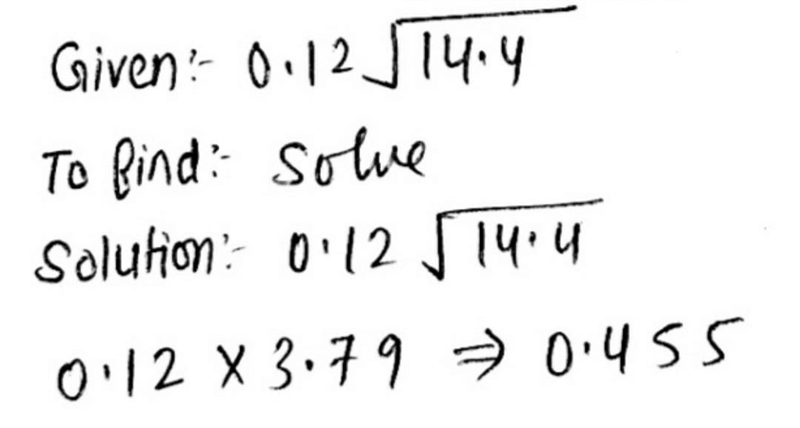 Given:- 0.12√14.4
To find:- Solve
Solution:- 0.12 √14.4
0.12 × 3.79 ⇒ 0.455